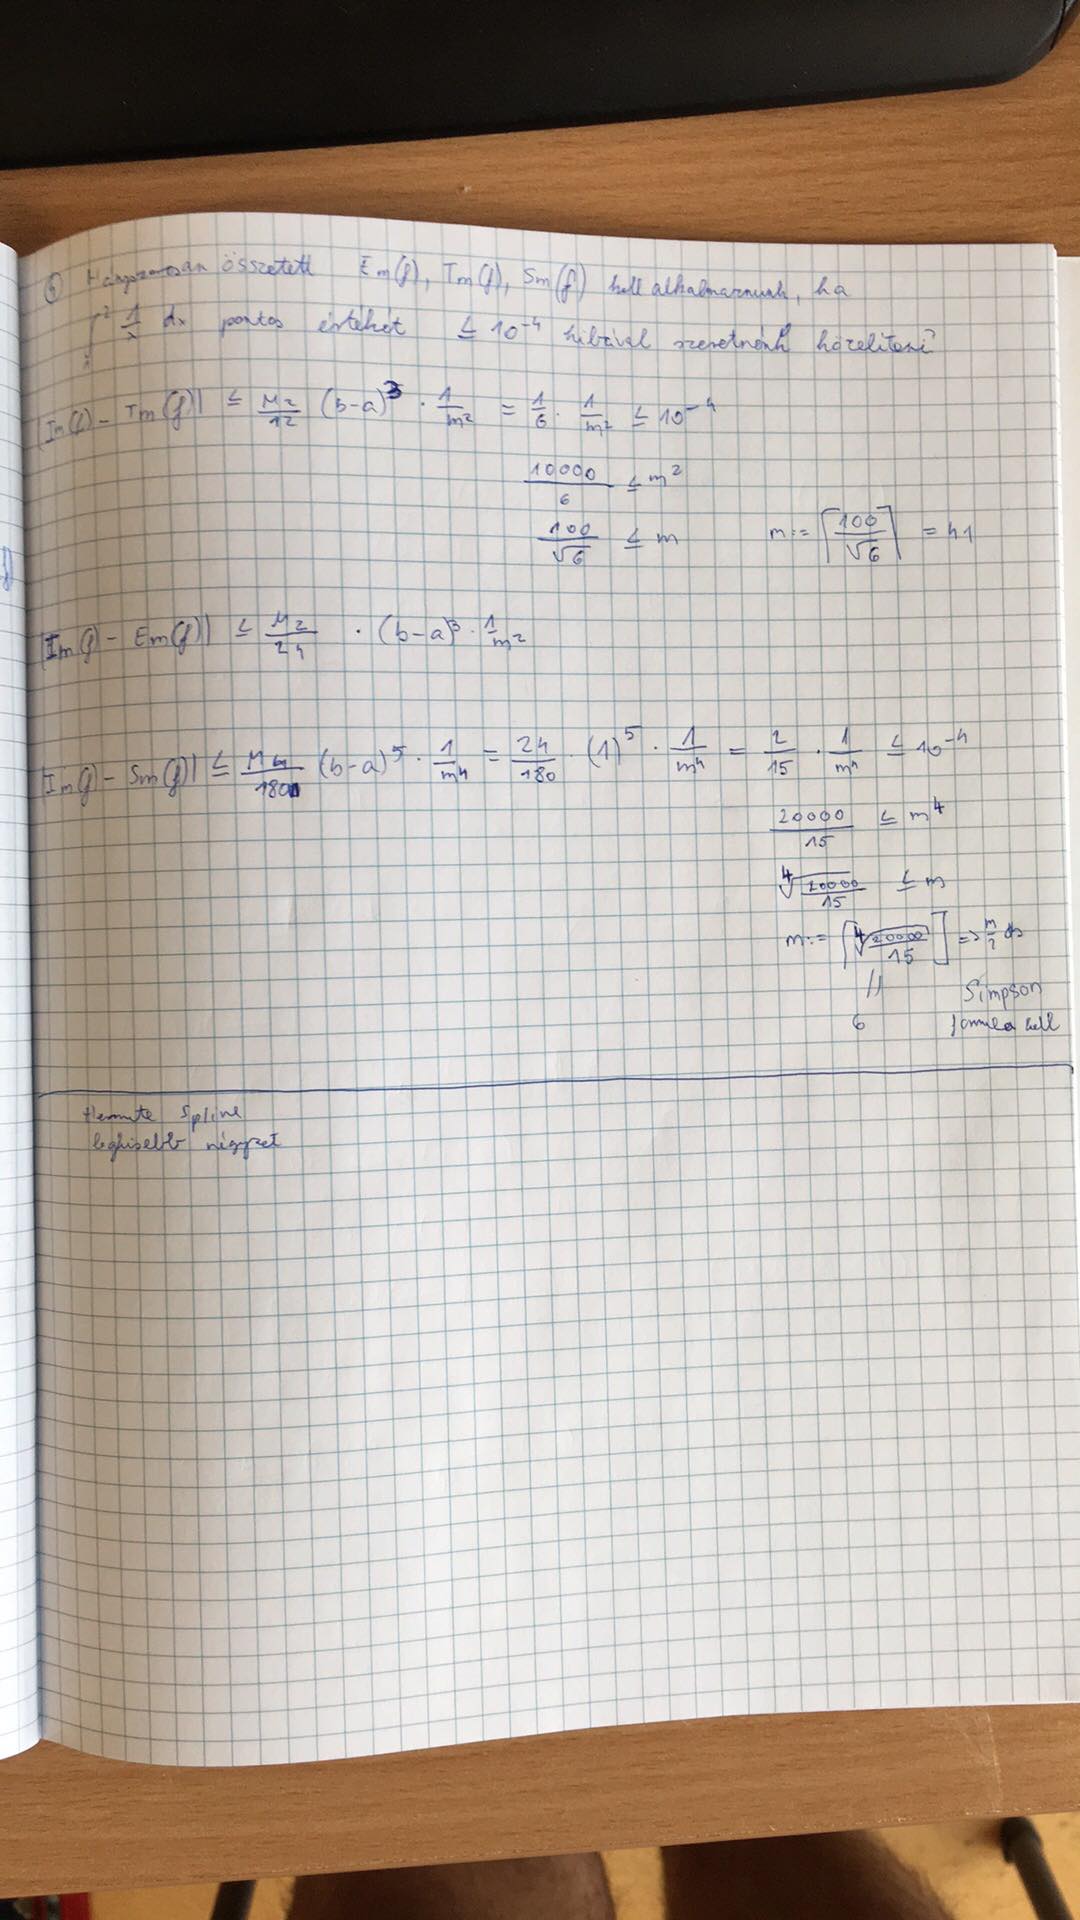 ⑥ Hányszorosan összetett Em(f), Tm(f), Sm(f) kell alkalmaznunk, ha
∫₁² 1/x dx pontos értékét ≤ 10⁻⁴ hibával szeretnénk közelíteni?
|Im(f) - Tm(f)| ≤ M₂/12 (b-a)³ · 1/m² = 1/6 · 1/m² ≤ 10⁻⁴
10000/6 ≤ m²
100/√6 ≤ m m := ⌈100/√6⌉ = 41
|Im(f) - Em(f)| ≤ M₂/24 · (b-a)³ · 1/m²
|Im(f) - Sm(f)| ≤ M₄/180 (b-a)⁵ · 1/m⁴ = 24/180 · (1)⁵ · 1/m⁴ = 2/15 · 1/m⁴ ≤ 10⁻⁴
20000/15 ≤ m⁴
⁴√(20000/15) ≤ m
m := ⌈⁴√(20000/15)⌉ => m/2 db
// Simpson
6 formula kell
Hermite Spline
legkisebb négyzet